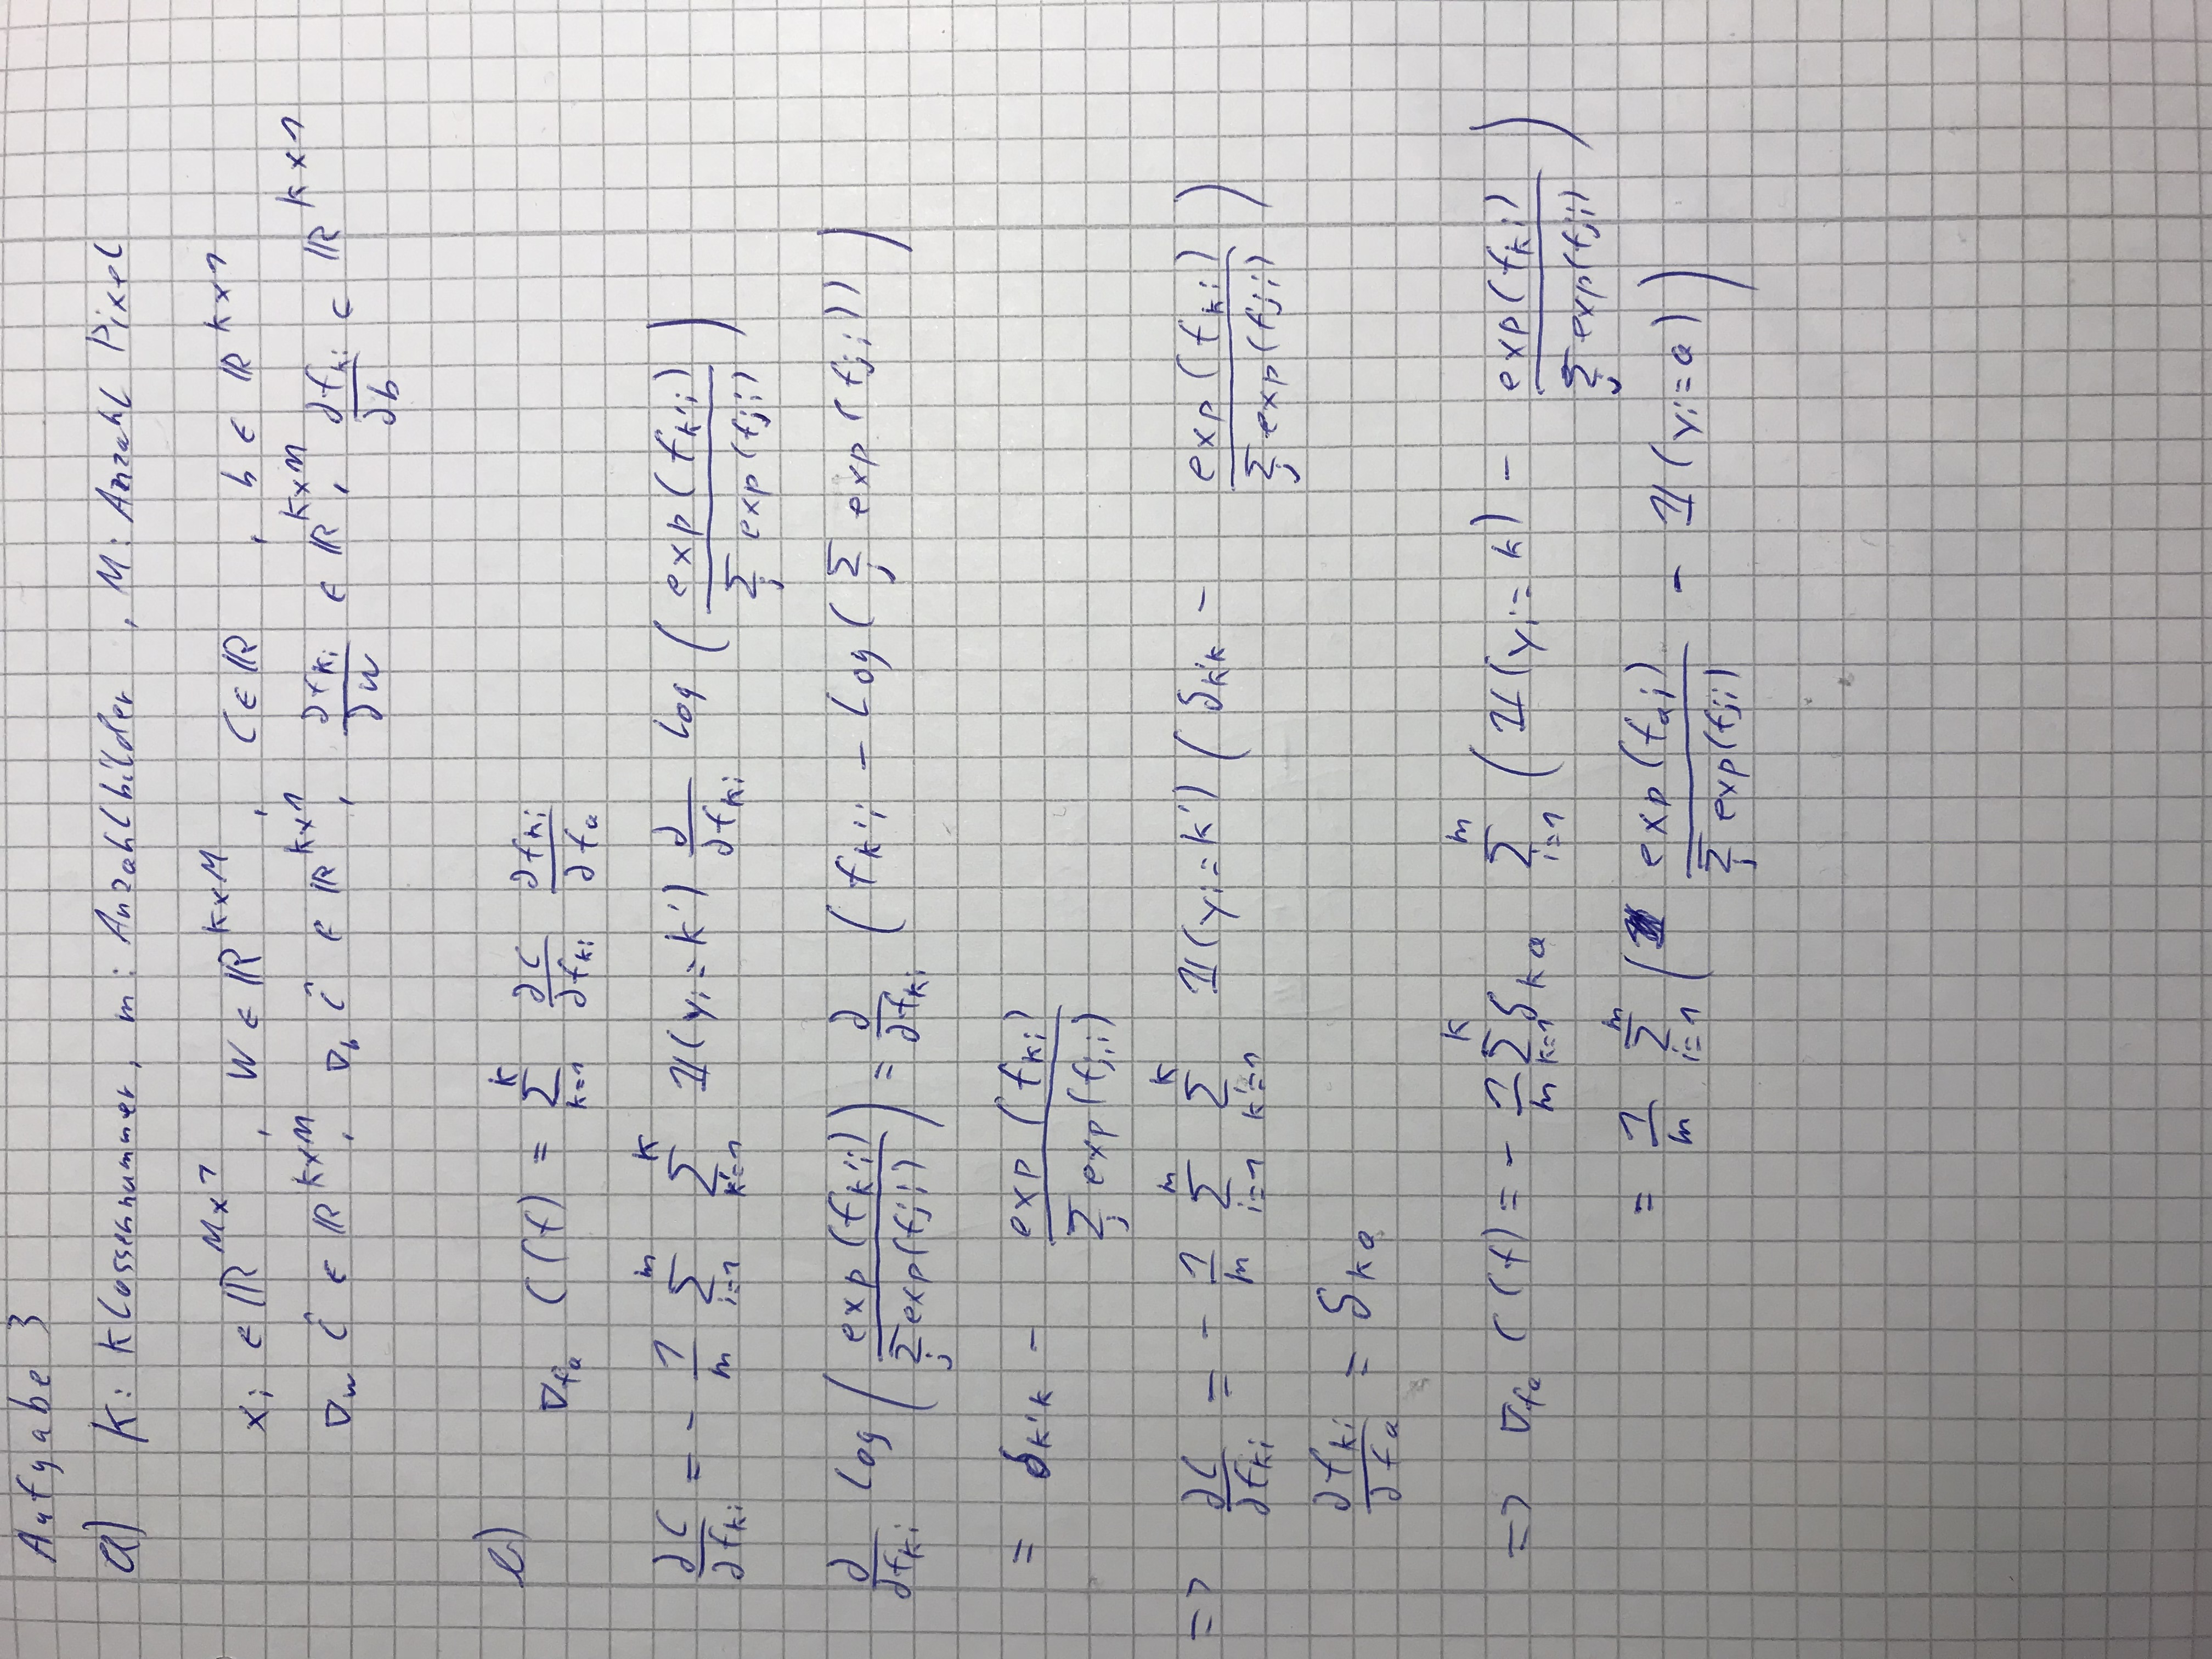 Aufgabe 3
a) K: Klassennummer, m: Anzahl bilder, M: Anzahl Pixel
x_i ∈ ℝ^{M×1}, W ∈ ℝ^{K×M}, C ∈ ℝ, b ∈ ℝ^{K×1}
∇_W Ĉ ∈ ℝ^{K×M}, ∇_b Ĉ ∈ ℝ^{K×1}, ∂f_{ki}/∂W ∈ ℝ^{K×M}, ∂f_{ki}/∂b ∈ ℝ^{K×1}
b)
∇_{f_a} C(f) = ∑_{k=1}^{K} ∂C/∂f_{ki} ∂f_{ki}/∂f_a
∂C/∂f_{ki} = - 1/m ∑_{i=1}^{m} ∑_{k'=1}^{K} 𝟙(y_i = k') ∂/∂f_{ki} log( exp(f_{k'i}) / ∑_j exp(f_{ji}) )
∂/∂f_{ki} log( exp(f_{k'i}) / ∑_j exp(f_{ji}) ) = ∂/∂f_{ki} ( f_{k'i} - log( ∑_j exp(f_{ji})) )
= δ_{k'k} - exp(f_{ki}) / ∑_j exp(f_{j,i})
=> ∂C/∂f_{ki} = - 1/m ∑_{i=1}^{m} ∑_{k'=1}^{K} 𝟙(y_i = k') ( δ_{k'k} - exp(f_{ki}) / ∑_j exp(f_{ji}) )
∂f_{ki}/∂f_a = δ_{ka}
=> ∇_{f_a} C(f) = - 1/m ∑_{k=1}^{K} δ_{ka} ∑_{i=1}^{m} ( 𝟙(y_i = k) - exp(f_{ki}) / ∑_j exp(f_{ji}) )
= 1/m ∑_{i=1}^{m} ( exp(f_{ai}) / ∑_j exp(f_{ji}) - 𝟙(y_i = a) )